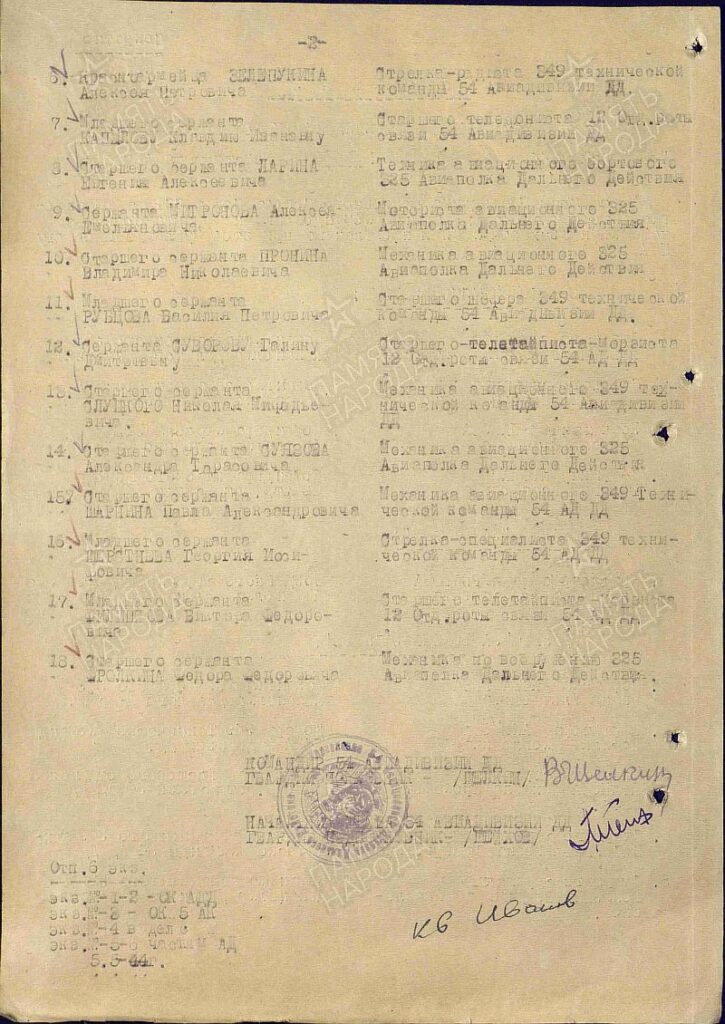 -2-
6. Красноармейца ЗЕЛЕПУКИНА
Алексея Петровича
Стрелка-радиста 349 технической
команды 54 Авиадивизии ДД.
7. Младшего сержанта
Клавдию Ивановну
Старшего телефониста 12 Отд.роты
связи 54 Авиадивизии ДД
8. Старшего сержанта ЛАРИНА
Евгения Алексеевича
Техника авиационного бортового
325 Авиаполка Дальнего Действия
9. Сержанта МИТРОНОВА Алексея
Емельяновича
Моториста авиационного 325
Авиаполка Дальнего Действия.
10. Старшего сержанта ПРОНИНА
Владимира Николаевича
Механика авиационного 325
Авиаполка Дальнего Действия
11. Младшего сержанта
РУБЦОВА Василия Петровича
Старшего 349 технической
команды 54 Авиадивизии ДД.
12. Сержанта СУВОРОВУ Галину
Дмитриевну
Старшего-телетайписта-Морзиста
12 Отд.роты связи 54 АД ДД
13. Старшего сержанта
СЛУЦКОГО Николая
вича.
Механика авиационного 349 тех-
нической команды 54 Авиадивизии
ДД
14. Старшего сержанта СУЯЗОВА
Александра Тарасовича.
Механика авиационного 325
Авиаполка Дальнего Действия
15. Старшего сержанта
Павла Александровича
Механика авиационного 349 Техни-
ческой команды 54 АД ДД
16. Младшего сержанта
ШЕРСТНЕВА Георгия Иоси-
фовича
Стрелка-специалиста 349 техни-
ческой команды 54 АД ДД
17. Младшего сержанта
Виктора Федоро-
вича
Старшего телетайписта
12 Отд.роты связи 54 АД ДД
18. Старшего сержанта
ФРОЛКИНА Федора Федоровича
Механика по вооружению 325
Авиаполка Дальнего Действия.
КОМАНДИР 54 АВИАДИВИЗИИ ДД
ГВАРДИИ /ЩЕЛКИН/ ВЩелкин
54 АВИАДИВИЗИИ ДД
Отп.6 экз.
экз.№-1-2 - ОК АДД
экз.№-3 - ОК 5 АК
экз.№-4 в дело
экз.№-5-6 частям АД
5.5-44г.
ПАМЯТЬ
НАРОДА